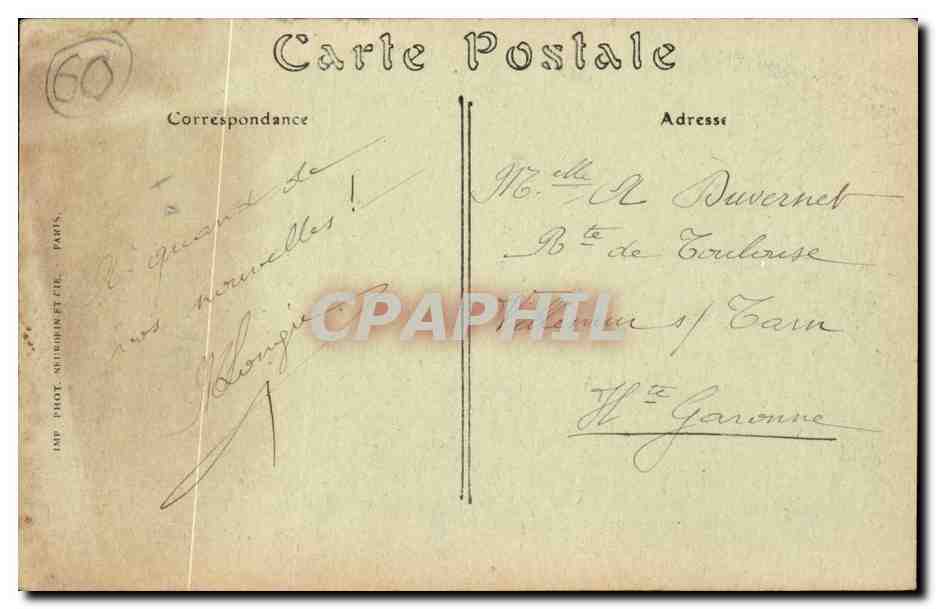 60
Carte Postale
Correspondance
A quand de
vos nouvelles !
IMP. PHOT. NEURDEIN ET CIE. - PARIS.
Adresse
M.elle A Duvernet
Rte de Toulouse
Villemur s/ Tarn
Hte Garonne
CPAPHIL